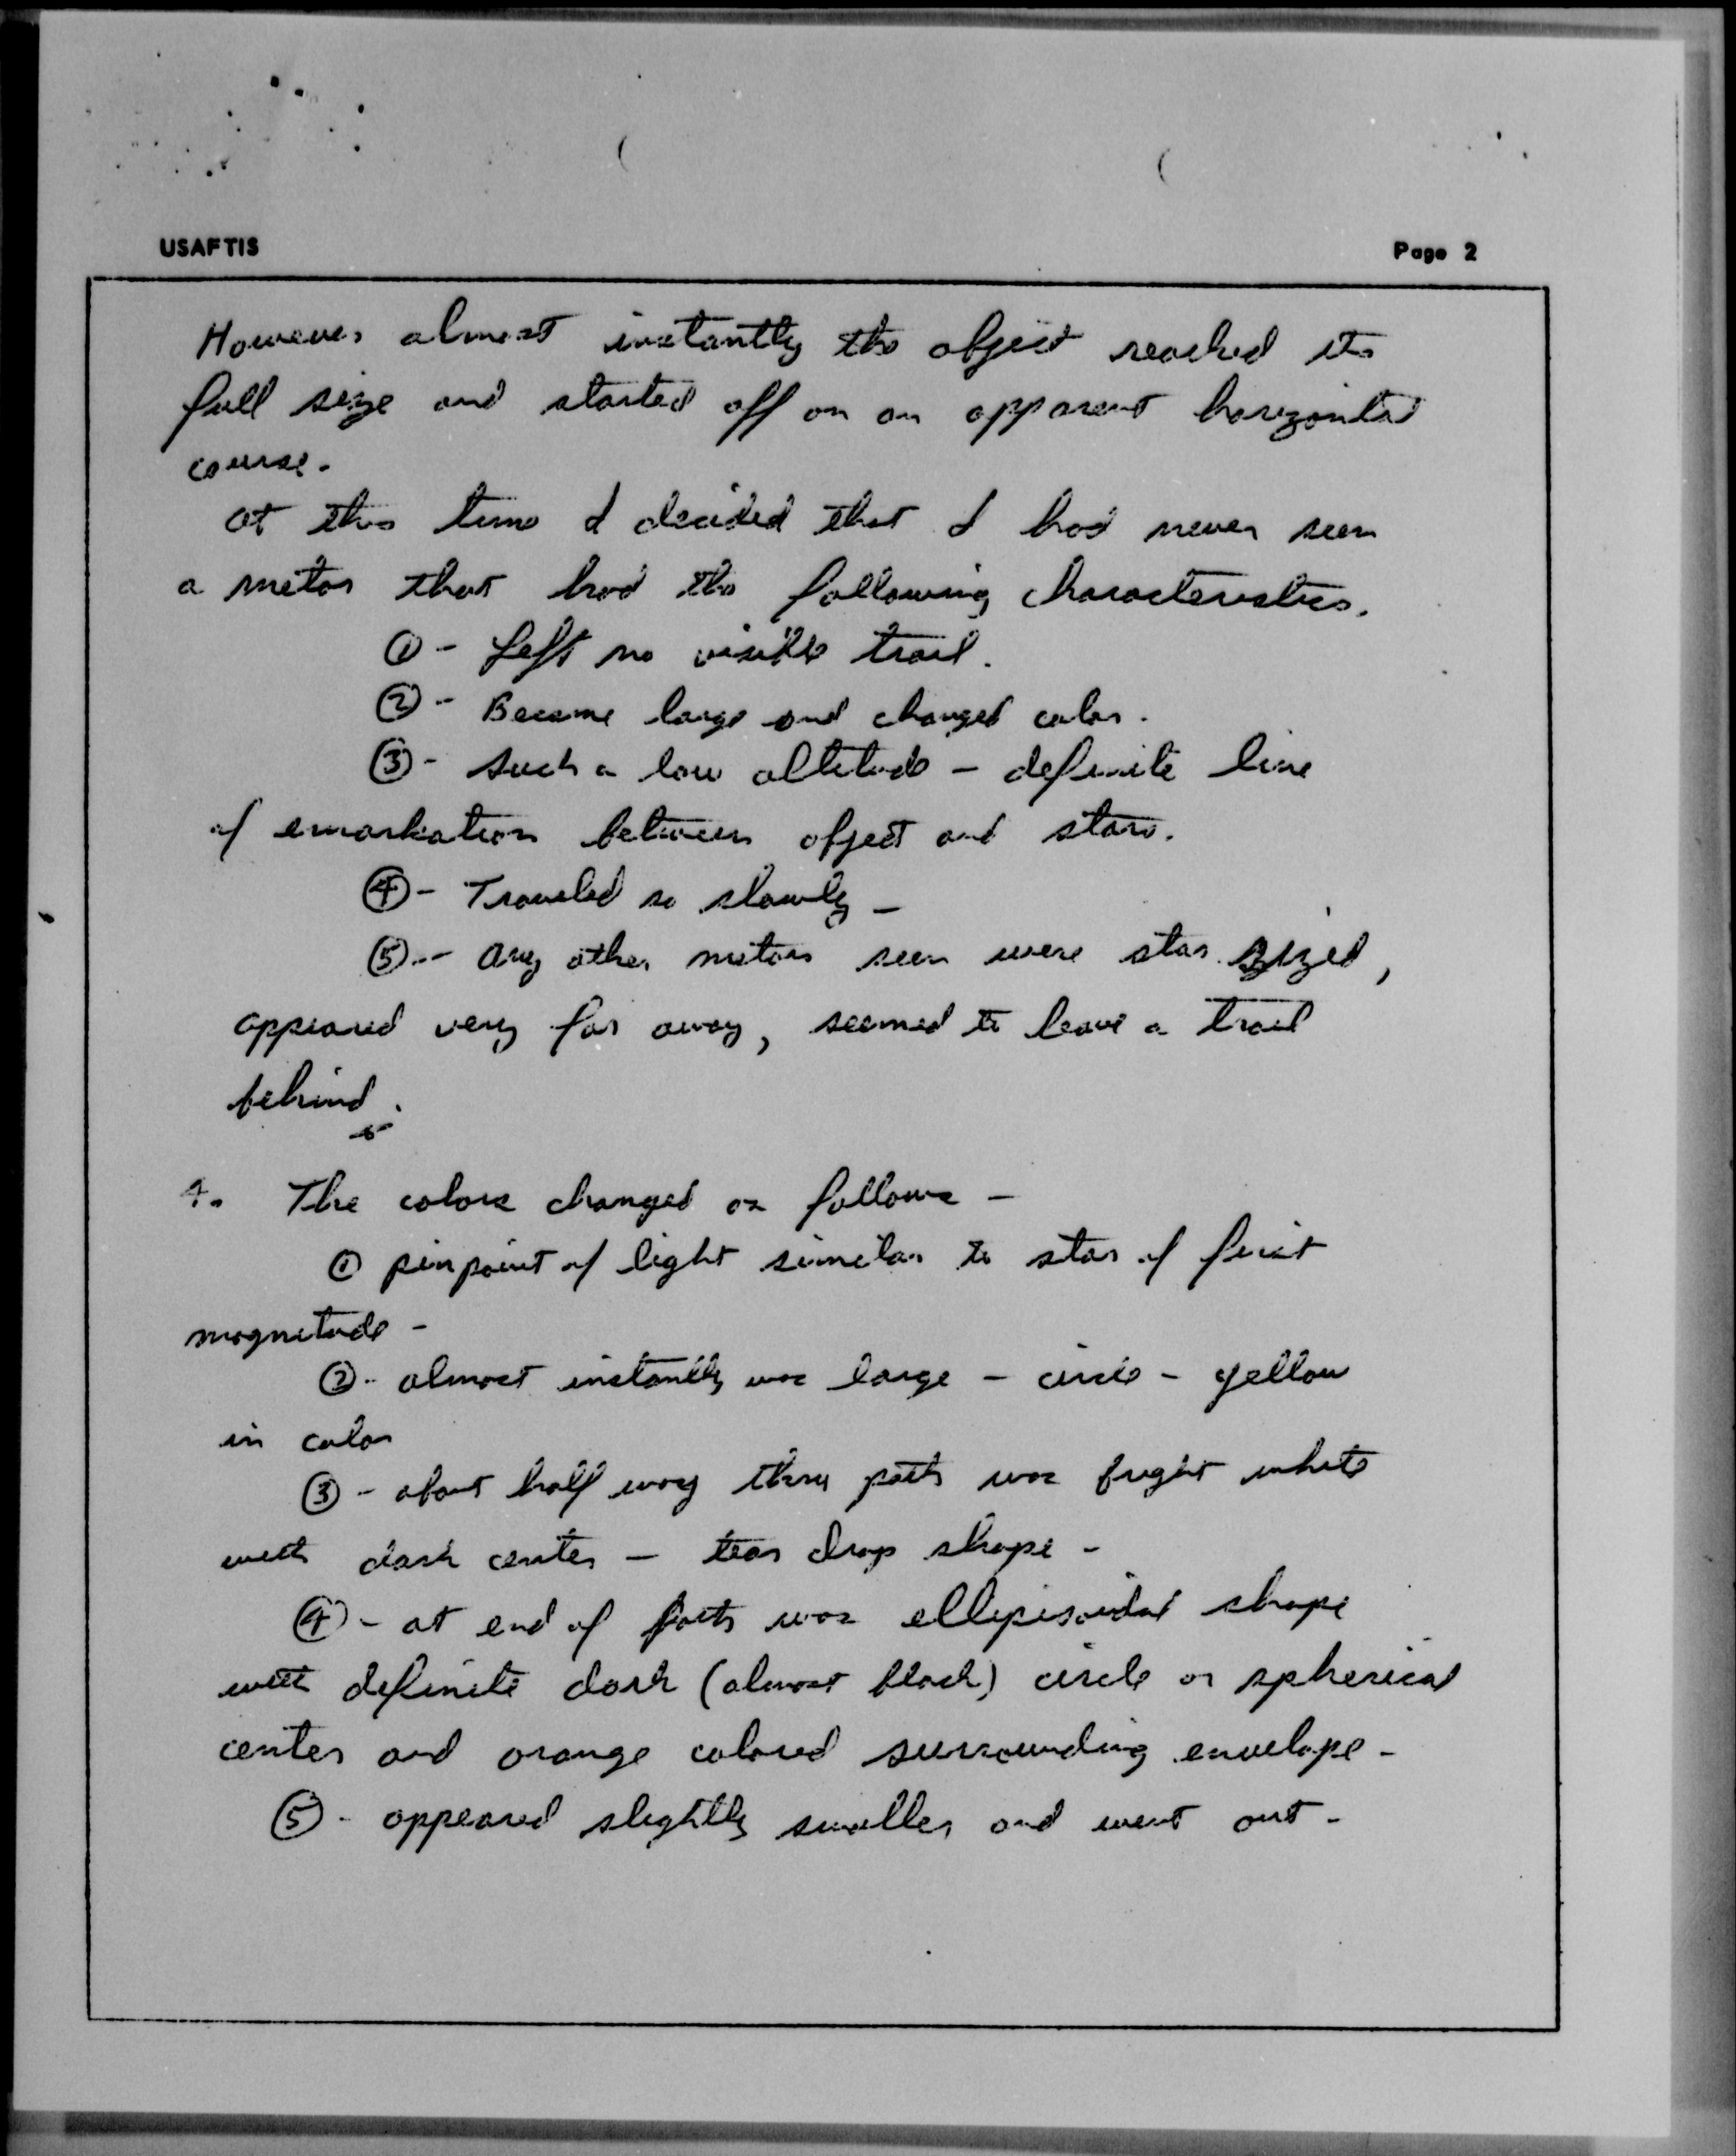 USAFTIS
Page 2
However almost instantly the object reached its
full size and started off on an apparent horizontal
course.
at this time I decided that I had never seen
a metor that had the following characteristics.
① - Left no visible trail.
② - Became large and changed color.
③ - such a low altitude - definite line
of emarkation between object and stars.
④ - Traveled so slowly -
⑤ - any other metors seen were star sized,
appeared very far away, seemed to leave a trail
behind.
4. The colors changed as follows -
① pinpoint of light similar to star of first
magnitude -
② - almost instantly was large - circle - yellow
in color
③ - about half way thru path was bright white
with dark center - tear drop shape -
④ - at end of path was ellipisoidal shape
with definite dark (almost black) circle or spherical
center and orange colored surrounding envelope -
⑤ - appeared slightly smaller and went out -